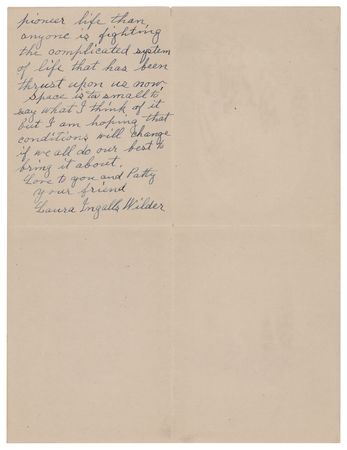 pioneer life than
anyone is fighting
the complicated system
of life that has been
thrust upon us now.
Space is to small to
say what I think of it
but I am hoping that
conditions will change
if we all do our best to
bring it about.
Love to you and Patty
Your friend
Laura Ingalls Wilder